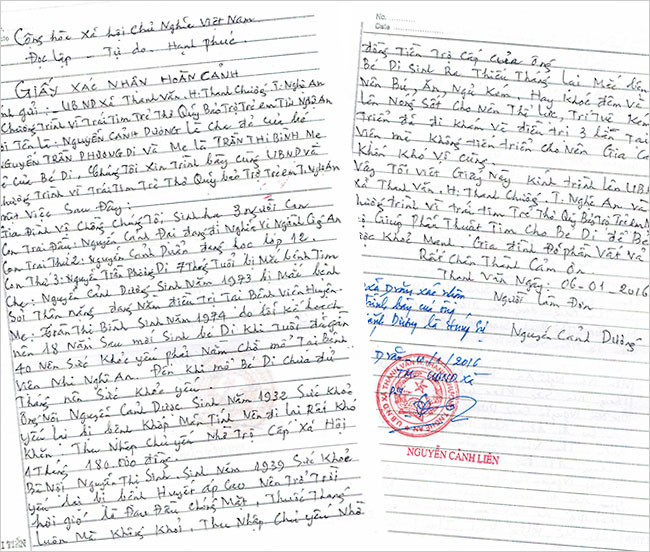 Cộng hòa Xã hội Chủ Nghĩa Việt Nam
Độc lập - Tự do - Hạnh phúc
GIẤY XÁC NHẬN HOÀN CẢNH
UBND Xã Thanh Văn, H. Thanh Chương, T. Nghệ An
Chương trình Vì Trái Tim Trẻ Thơ Quỹ Bảo Trợ Trẻ em Tỉnh Nghệ An
Tên Là: NGUYỄN CẢNH DƯƠNG là Cha đẻ của bé
NGUYỄN TRẦN PHƯƠNG DI Và Mẹ là TRẦN THỊ BÌNH Mẹ
của Bé Di, Chúng Tôi Xin Trình bày Cùng UBND Và
Chương Trình Vì Trái Tim Trẻ Thơ Quỹ bảo Trợ Trẻ em T. Nghệ An
Việc Sau Đây:
Gia Đình Vợ Chồng Chúng Tôi Sinh ra 3 người Con
Con Trai Đầu: Nguyễn Cảnh Đại đang đi Nghĩa Vụ
Con Trai Thứ 2: Nguyễn Cảnh Duẩn đang học lớp 12.
Con Thứ 3: Nguyễn Trần Phương Di 7 Tháng Tuổi bị Mắc bệnh Tim
Cha: Nguyễn Cảnh Dương Sinh Năm 1973 bị Mắc bệnh
Sỏi Thận Nặng đang Nằm điều Trị Tại Bệnh Viện Huyện.
Mẹ: Trần Thị Bình Sinh Năm 1974 do lỡ kế hoạch
nên 18 Năm Sau mới Sinh bé Di Khi Tuổi đã gần
40 Nên Sức Khỏe yếu phải Nằm Chờ mổ Tại Bệnh
Viện Nhi Nghệ An. Đến khi mổ Bé Di Chưa đủ
Tháng nên Sức Khỏe yếu
Ông Nội Nguyễn Cảnh Dược Sinh Năm 1932 Sức Khỏe
yếu Lại bị bệnh Khớp Mãn Tính Nên đi lại Rất Khó
Khăn, Thu Nhập Chủ yếu Nhờ Trợ Cấp Xã Hội
1 Tháng 180.000 đồng.
Bà Nội Nguyễn Thị Sinh, Sinh Năm 1939 Sức Khỏe
yếu lại bị bệnh Huyết áp Cao Nên Trở Trời
hơi gió là Đau Đầu Chóng Mặt, Thuốc Thang
luôn Mà Không Khỏi, Thu Nhập Chủ yếu Nhờ
No.
Date
đồng Tiền Trợ Cấp của ông
Bé Di Sinh Ra Thiếu Tháng Lại Mắc bệnh
Nên Bú, Ăn, Ngủ Kém, Hay Khóc đêm Và
Lên Nóng Sốt Cho Nên Thể lực, Trí Tuệ Kém
triển đã đi khám Và điều trị 3 lần Tại
Viện mà không tiến triển Cho Nên Gia Cảnh
Khốn Khó Vô Cùng.
Vậy Tôi Viết Giấy Này Kính trình lên UBND
Xã Thanh Văn, H. Thanh Chương, T. Nghệ An Và
Chương Trình Vì trái tim Trẻ Thơ Quỹ Bảo Trợ Trẻ em
Giúp Phẩu Thuật Tim Cho Bé Di để Bé
Sức Khoẻ Mạnh Gia đình đỡ phần Vất Vả
Rất Chân Thành Cảm Ơn.
Thanh Văn Ngày: 06-01 2016
Người Làm Đơn
Nguyễn Cảnh Dương
xác nhận
Trình bày của ông
Dương là đúng sự
2016
TM. UBND Xã
NGUYỄN CẢNH LIÊN